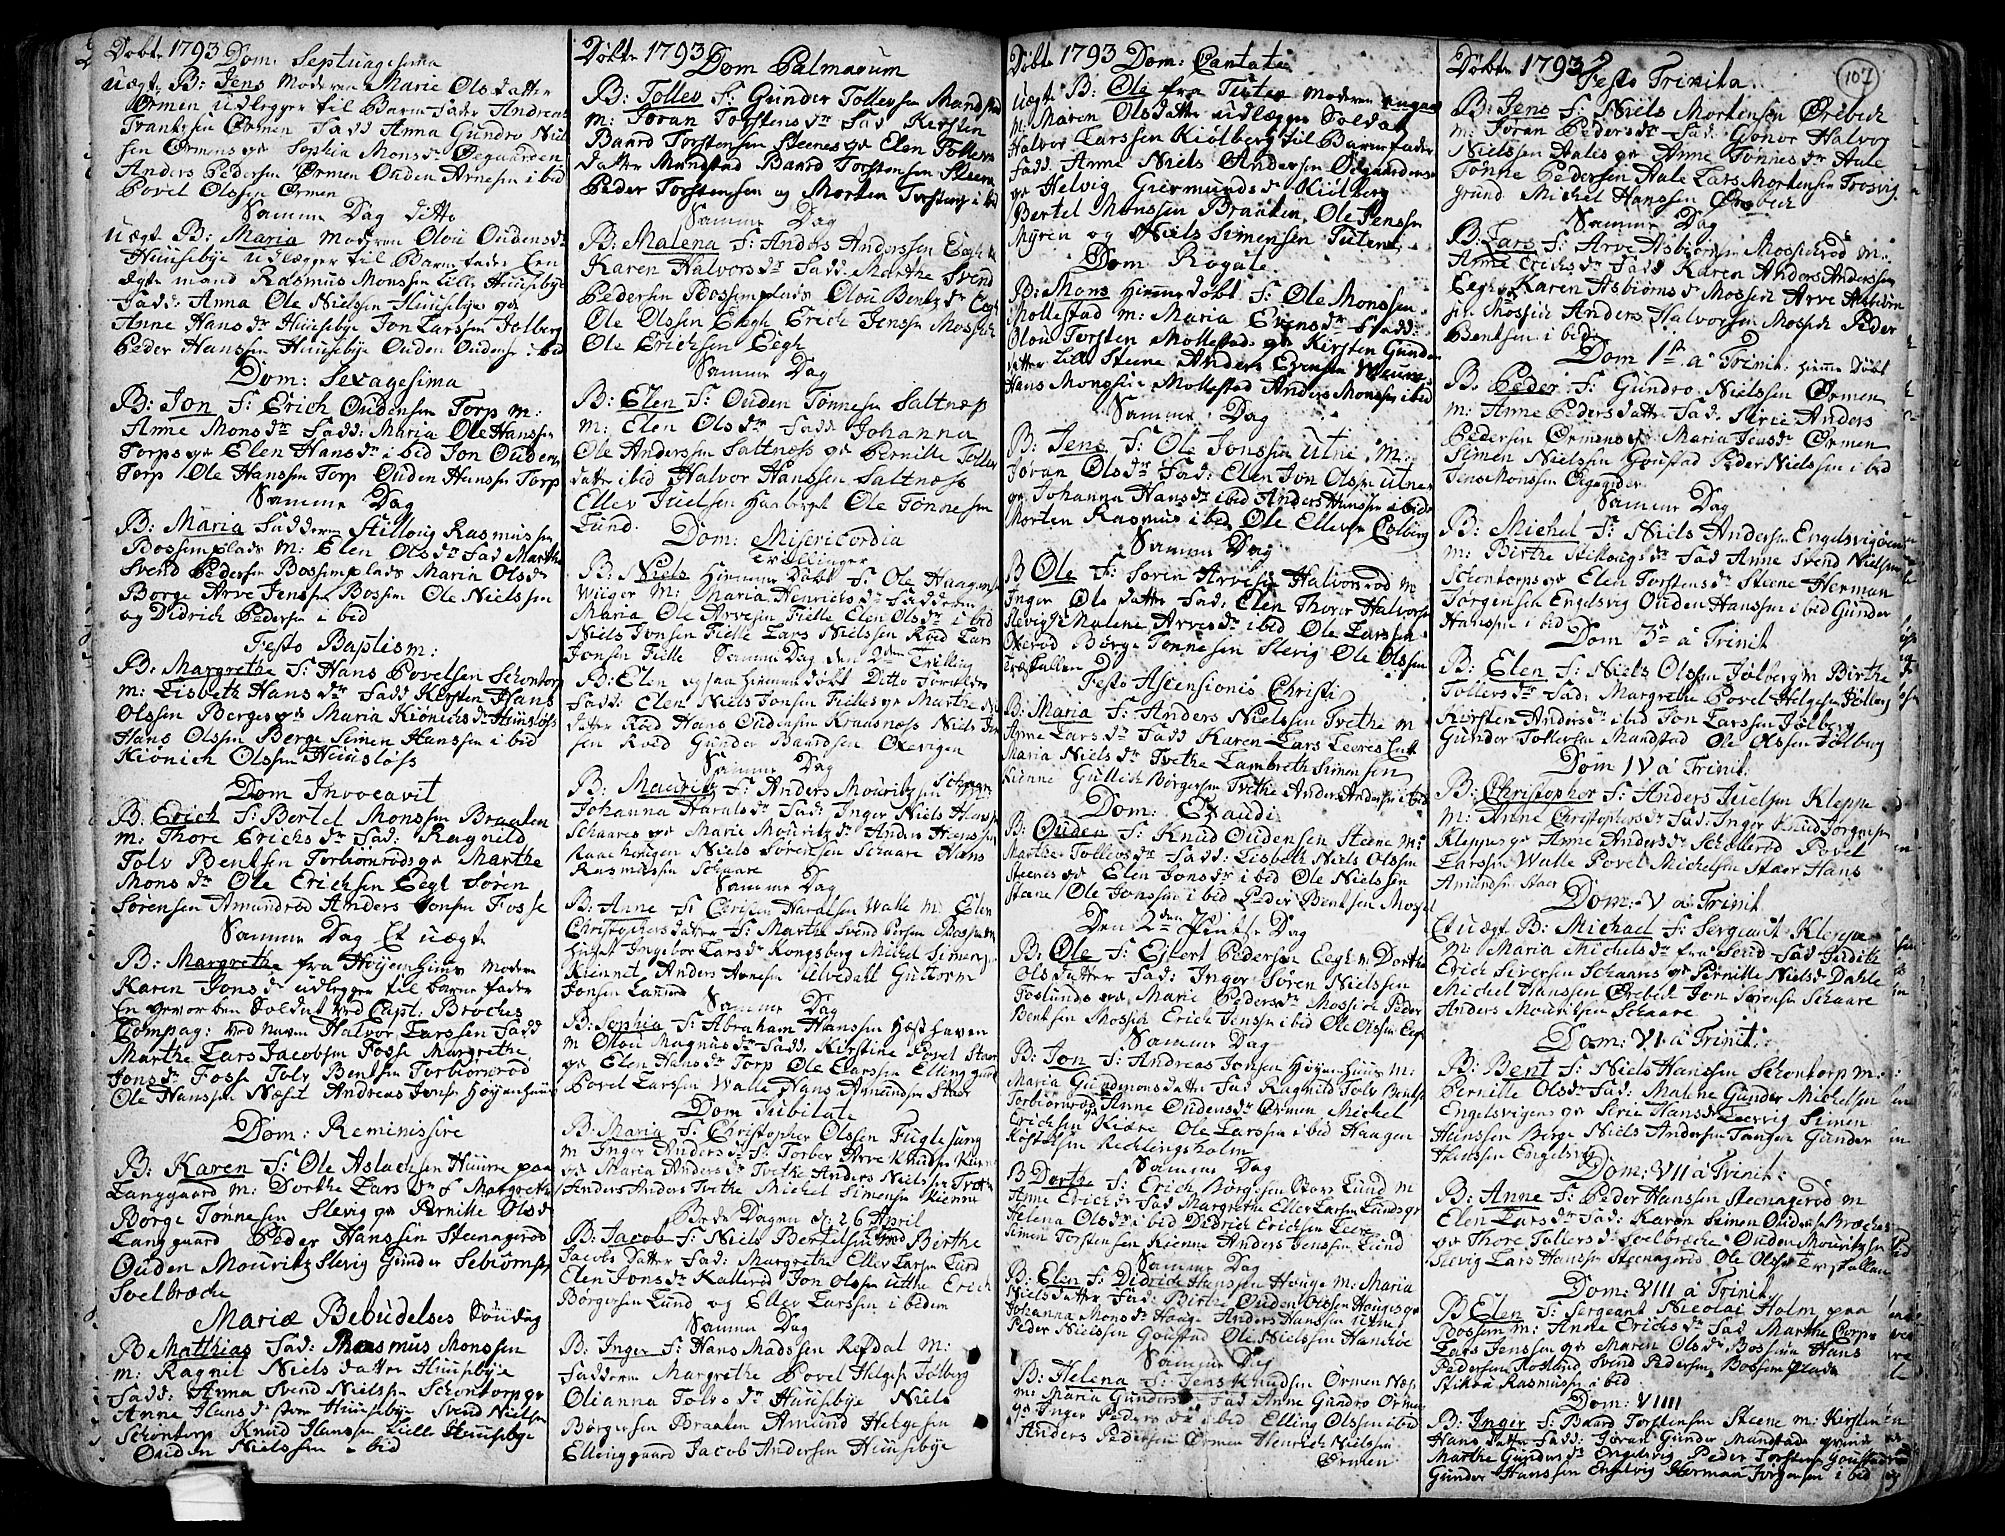 Døbte 1793 Dom: Septuagesima
uægt B: Jens Moderen Marie Ols datter
Ørmen udlegger til Barne fader Andreas
Frantzen Ørmen Fadd Anna Gundro Niel
sen Ørmens og Sophia Mons dr Øegaarden
Anders Pedersen Ørmen Ouden Arnesen ibid
Povel Olssen Ørmen
Samme Dag ditto
uægt B: Maria Moderen Olou Oudens dr
Huusebye udlægger til Barne fader Een
ægte mand Rasmus Monssen Lille Huusebye
Fadd: Anna Ole Nielssen Huusebye og
Anne Hans dr Huusebye Jon Larssen Jølberg
Peder Hanssen Huusebye Ouden Oudense ibid
Dom: Sexagesima
B: Jon F: Erich Oudensen Torp m:
Anne Mons dr Fadd: Maria Ole Hanssen
Torps og Elen Hans dr ibid Jon Ouden
Torp Ole Hanssen Torp Ouden Hanssen Torp
Samme Dag
B: Maria Fadderen Stillovig Rasmussen
Bossumplads M: Elen Ols dr Fad Marthe
Svend Pedersen Bossumplads Maria Ols dr
Borge Arve Jenssen Bossum Ole Nielssen
og Didrich Pedersen ibid
Festo Baptism:
B: Margrethe F: Hans Povelsen Schontorp
m: Lisbeth Hans dr Fadd Kirsten Hans
Olssen Berges og Maria Kiönichs dr Huusløss
Hans Olssen Berge Simen Hanssen ibid
Kiönich Olssen Huusløss
Dom Invocavit
B: Erich F: Bertel Monssen Braaten
m: Thore Erichs dr Fad: Ragnild
Tolv Bentsen Torbiornrøds og Marthe
Mons dr Ole Ericksen Eegh Søren
Sørensen Amundrød Anders Jonsen Fosse
Samme Dag Et uægte
B: Margrethe fra Høyum Huus Moderen
Karen Jons dr udlegger til barne fader
En gevorben Soldat ved Capt: Broches
Compag: ved navn Halvor Larssen Fadd
Marthe Lars Jacobsen Fosse Margrethe
Jons dr Fosse Tolv Bentsen Torbiornrød
Ole Hanssen Næset Andreas Jonsen Høyenhuus
Dom: Reminiscire
B: Karen F: Ole Aslachsen Huurne paa
Langgaard m: Dorthe Lars dr F Margrethe
Borge Tønnesen Slevig og Pernille Ols dr
Langgaard Peder Hanssen Steenagerød
Ouden Mouritz Slevig Gunder Sebiørnsen
Svelbræche
Mariæ Bebudelses Søndag
B Matthias Fad: Rasmus Monssen
m: Ragnil Niels datter Huusebye
Fadd: Anna Svend Nielssen Schontorps og
Anne Hans dr store Huusebye Svend Nielsen
Schontorp Knud Hanssen Lille Huusebye
Ouden Nielssen ibid
Døbte 1793 Dom Palmarum
B: Tollev F: Gunder Tollevsen Mandstad
m: Joran Torstens dr Fad Kirsten
Baard Torstensen Steenes og Elen Tollevs
datter Mandstad Baard Torstensen Steene
Peder Torstensen og Morten Torstens ibid
Samme Dag
B: Malena F: Anders Anderssen Eegh m
Karen Halvors dr Fadd: Marthe Svend
Pedersen Bossumplads Olou Bents dr Eegh
Ole Olssen Eegh Erich Jenssen Mossich
Ole Erichsen Eegh
Samme Dag
B: Elen F: Ouden Tønnesen Saltnæss
m: Elen Ols dr Fadd Johanna
Ole Anderssen Saltnæss og Pernille Tollev
datter ibid Halvor Hanssen Saltnæss
Ellev Juelsen Haaberget Ole Tønnesen
Lund
Dom: Misericordia
Trillinger
B: Niels Hiemme Døbt F: Ole Haagensen
Wiiger M: Maria Henrichs dr Fadderne
Maria Ole Arvesen Fielle Elen Ols dr ibid
Niels Jonsen Fielle Lars Nielssen Røed Lars
Jonsen Fielle Samme Dag den 2den Trilling
B: Elen ogsaa hiemme døbt Ditto Foreldre
Fadd: Elen Niels Jonsen Fielles og Marthe
datter Røed Hans Oudensen Kraagnæss Niels
sen Røed Gunder Baardsen Oxevigen
Samme Dag
B: Mauritz F: Anders Mouritzen
Johanna Harals dr Fad: Inger Niels Hanssen
Schaares og Marie Mouritz dr Anders Jrensen
Raae haugen Niels Sørensen Schaare Hans
Rasmussen Schaare
Samme Dag
B: Anne F: Christen Haralsen Walle M: Elen
Christophers datter F: Marthe Svend
Huset Ingebor Lars dr Kongsberg Michel Simens
Kiennit Anders Arnesen Ulvedall Gutorm
Jonsen Lamme
Samme Dag
B: Sophia F: Abraham Hanssen Hæst haven
m Olou Magnus dr Fadd: Kirstine Povel Staer
og Elen Hans dr Torp Ole Larssen Ellinggaard
Povel Larssen Walle Hans Amundsen Staer
Dom Jubilate
B: Maria F: Christopher Olssen Fuglesang
m Inger Anders dr F: Torber Arve Knudsen
og Maria Anders dr Tvethe Anders Nielssen Tvethe
Anders Anders Tvethe Michel Simensen Kienne
Bede Dagen d: 26 April
B: Jacob F: Niels Bertelsen Lund Birthe
Jacobs Datter Fad: Margrethe Ellev Larsen Lund
Elen Jons dr Kallerød Jon Olssen Utne Erich
Børgersen Lund og Ellev Larssen ibidem
Samme Dag
B: Inger F: Hans Madssen Refdal M:
Fadderne Margrethe Povel Helgese Jølberg
Olianna Tolvs dr Huusebye Niels
Børgersen Braaten Amund Helgesen
Ellinggaard Jacob Andersen Huusebye
Døbte 1793 Dom: Cantate
uægt B: Ole fra Tuten Moderen
m. Maren Ols datter udlægger Soldat
Halvor Larssen Kiølberg til Barnefader
Fadd: Anne Niels Andersen Ødgaardens
og Helvig Guermunds dr Kiølberg
Bertel Monssen Braaten Ole Jenssen
Myren og Niels Simensen Tuten
Dom Rogate
B: Mons hiemme døbt F: Ole Monssen
Mollestad m: Maria Evens dr Fadd:
Olou Torsten Mollestads og Kirsten Gunder
datter Lille Steene Anders Evensen Wiume
Hans Mongsen Mollestad Anders Monssen ibid
Samme Dag
B: Jens F: Ole Jonssen Utne M:
Joran Ols dr Fad: Elen Jon Olssen Utne
og Johanna Hans dr ibid Anders Hanssen ibid
Morten Rasmus ibid Ole Ellevsen Colberg
Samme Dag
B Ole F: Søren Arvesen Halvorsrød m
Inger Ols datter Fad: Elen Thorer Halvorsen
Slevig og Malene Arves dr ibid Ole Larssen
Oxerød Børge Tønnesen Slevig Ole Olssen
Træskallen
Festo Ascensionis Christi
B: Maria F: Anders Nielssen Tvethe m
Anne Lars dr Fadd Karen Lars Leeres Lett
Maria Niels dr Tvethe Lambreth Simensen
Kienne Gullich Børgersen Tvethe Anders Andersen ibid
Dom: Exaudi
B: Ouden F: Knud Oudensen Steene m:
Marthe Tollevs dr Fadd: Lisbeth Niels Olssen
Steenes og Elen Jons dr ibid Ole Nielssen
Steene Ole Jonssen ibid Peder Bentsen Mosset
Den 2den Pintse Dag
B: Ole F: Ejlert Pedersen Eegh m Dorthe
Ols datter Fad: Inger Søren Nielssen
Foslunds og Marie Peders dr Mossich Peder
Bentsen Mossich Erich Jenssen ibid Ole Olssen Eegh
Samme Dag
B: Jon F: Andreas Jonsen Høyum Huus m:
Maria Gundmons datter Fad Ragnild Tolv Bentse
Torbiornrød og Anne Oudens dr Ørmen Michel
Ericksen Kiære Ole Larssen ibid Haagen
Kostersen Rechlingsholm
Samme Dag
B Dorthe F: Erich Børgesen Lund m
Anne Erichs dr Fad Margrethe Ellev Larsen Lunds og
Helena Ols dr ibid Didrich Ericksen Leere
Simen Torstensen Kienne Anders Jenssen Lund
Samme Dag
B: Elen F: Didrich Hanssen Hauge m: Maria
Niels datter Fad: Birthe Ouden Olssen Hauges og
Johanna Mons dr Hauge Anders Hanssen Utne
Peder Nielssen Goustad Ole Nielssen Hankøe
Samme Dag
B: Helena F: Jens Knudsen Ørmen Næs
m: Maria Gunders dr Fad Anne Gundro Ørmen
og Inger Peders dr ibid Elling Olssen ibid
Anders Pedersen Ørmen Henrich Nielssen
Ørmen
107
Døbte 1793 Festo Trinita
B: Jens F: Niels Mortensen Ørebech
m: Joran Peders dr Fad: Gonor Halvor
Nielssen Hales og Anne Tønnes dr Hale
Tønne Pedersen Hale Lars Mortensen Trosvig
grund Michel Hanssen Ørebech
Samme Dag
B: Lars F: Arve Asbiørnsen Mossicherød m:
Anne Erichs dr Fadd Karen Anders Anderssen
Eegh og Karen Asbiørns dr Mossich Arve Asbiørn
sen Mossich Anders Halvorsen Mossich Peder
Bentsen ibid
Dom 1ste a Trinit: hieme Døbt
B: Peder F: Gundro Nielssen Ørmen
m: Anne Peders datter Fad: Sirie Anders
Pedersen Ørmens og Maria Jens dr Ørmen
Simen Nielssen Goustad Peder Nielssen ibid
Jens Monssen Øegegrden
Samme Dag
B: Michel F: Niels Andersen Engelsvigøen
m: Birthe Stilovigs dr Fad Anne Svend Nielsen
Schontorps og Elen Torstens dr Steene Herman
Jørgensen Engelsvig Ouden Hanssen ibid Gunder
Hanssen ibid
Dom 3de a Trinit
B: Elen F: Niels Olssen Jølberg m Birthe
Tollevs dr Fad: Margrethe Povel Helgesen Jølberg
Kirsten Anders dr ibid Jon Larssen Jølberg
Gunder Tollevsen Mandstad Ole Olssen Jølberg
Dom IV a Trinit:
B: Christopher F: Anders Juelsen Kleppe
m: Anne Christophers dr Fad: Inger Knud Jorgensen
Kleppes og Anne Anders dr Schallerød Povel
Larssen Walle Povel Michelsen Staer Hans
Amundsen Staer
Dom: V a Trinit
Et uægt B: Michael F: Sergeant Kleppe
m: Maria Michels dr fra Lund Fad Judith
Erich Siversen Schaars og Pernille Niels dr Dahle
Michel Hanssen Ørebech Jon Sørensen Schaare
Anders Mouritsen Schaare
Dom: VI a Trinit:
B: Bent F: Niels Hanssen Schontorp m:
Pernille Ols dr Fad: Malene Gunder Michelsen
Engelsvigen og Sirie Hans dr Leervig Simen
Hanssen Børge Niels Andersen Tangen Gunder
Hanssen Engelsvig
Dom: VII a Trinit:
B: Anne F: Peder Hanssen Steenagerød m
Elen Lars dr Fad: Karen Simen Ouden Bræches
og Thore Tollevs dr Svelbræche Ouden Mouritzen
Slevig Lars Hanssen Steenagerød Ole Olssen Træskallen
Dom: VIII a Trinit
B Elen F: Sergeant Nicolai Holm paa
Bossum m: Anne Erichs dr Fad Marthe Corps
Lars Jenssen og Maren Ols dr Bossum Hans
Pedersen Roslund Svend Pedersen Bossum plads
Stilou Rasmussen ibid
Dom: VIIII
B: Inger F: Baard Torstensen Steene m: Kirsten
Hans datter Fadd: Joran Gunder Mandstads qvinde
Marthe Gunders dr Engelsvig Peder Torstensen Goustad
Gunder Hanssen Engelsvig Herman Jørgensen ibid